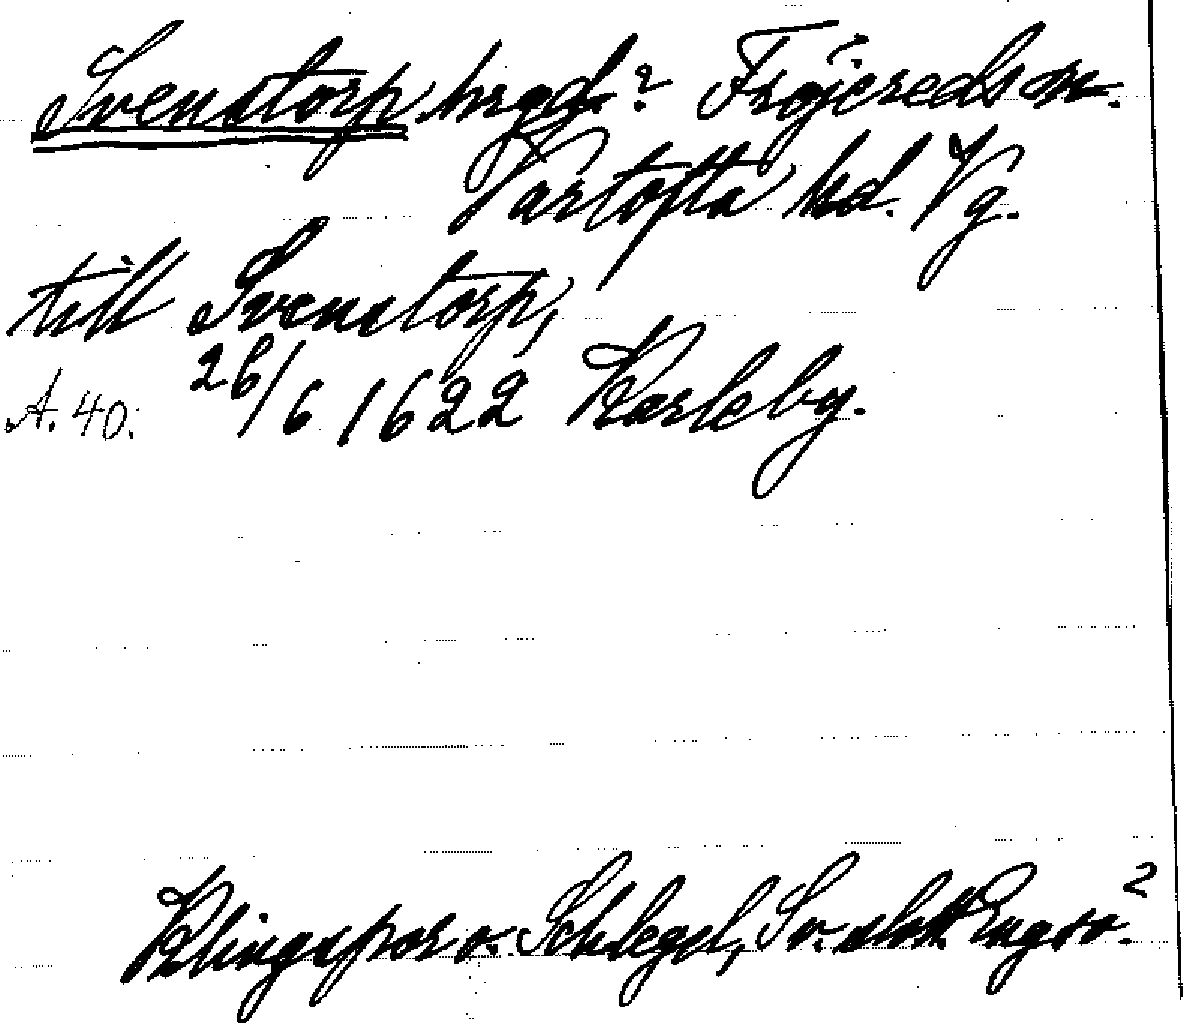 Svenstorp hrgd? Fröjereds sn.
Vartofta hd. Vg.
till Svenstorp,
A. 40. 26/6 1622 Karleby.
Klingspor o. Schlegel, Sv. slott Engsö. 2